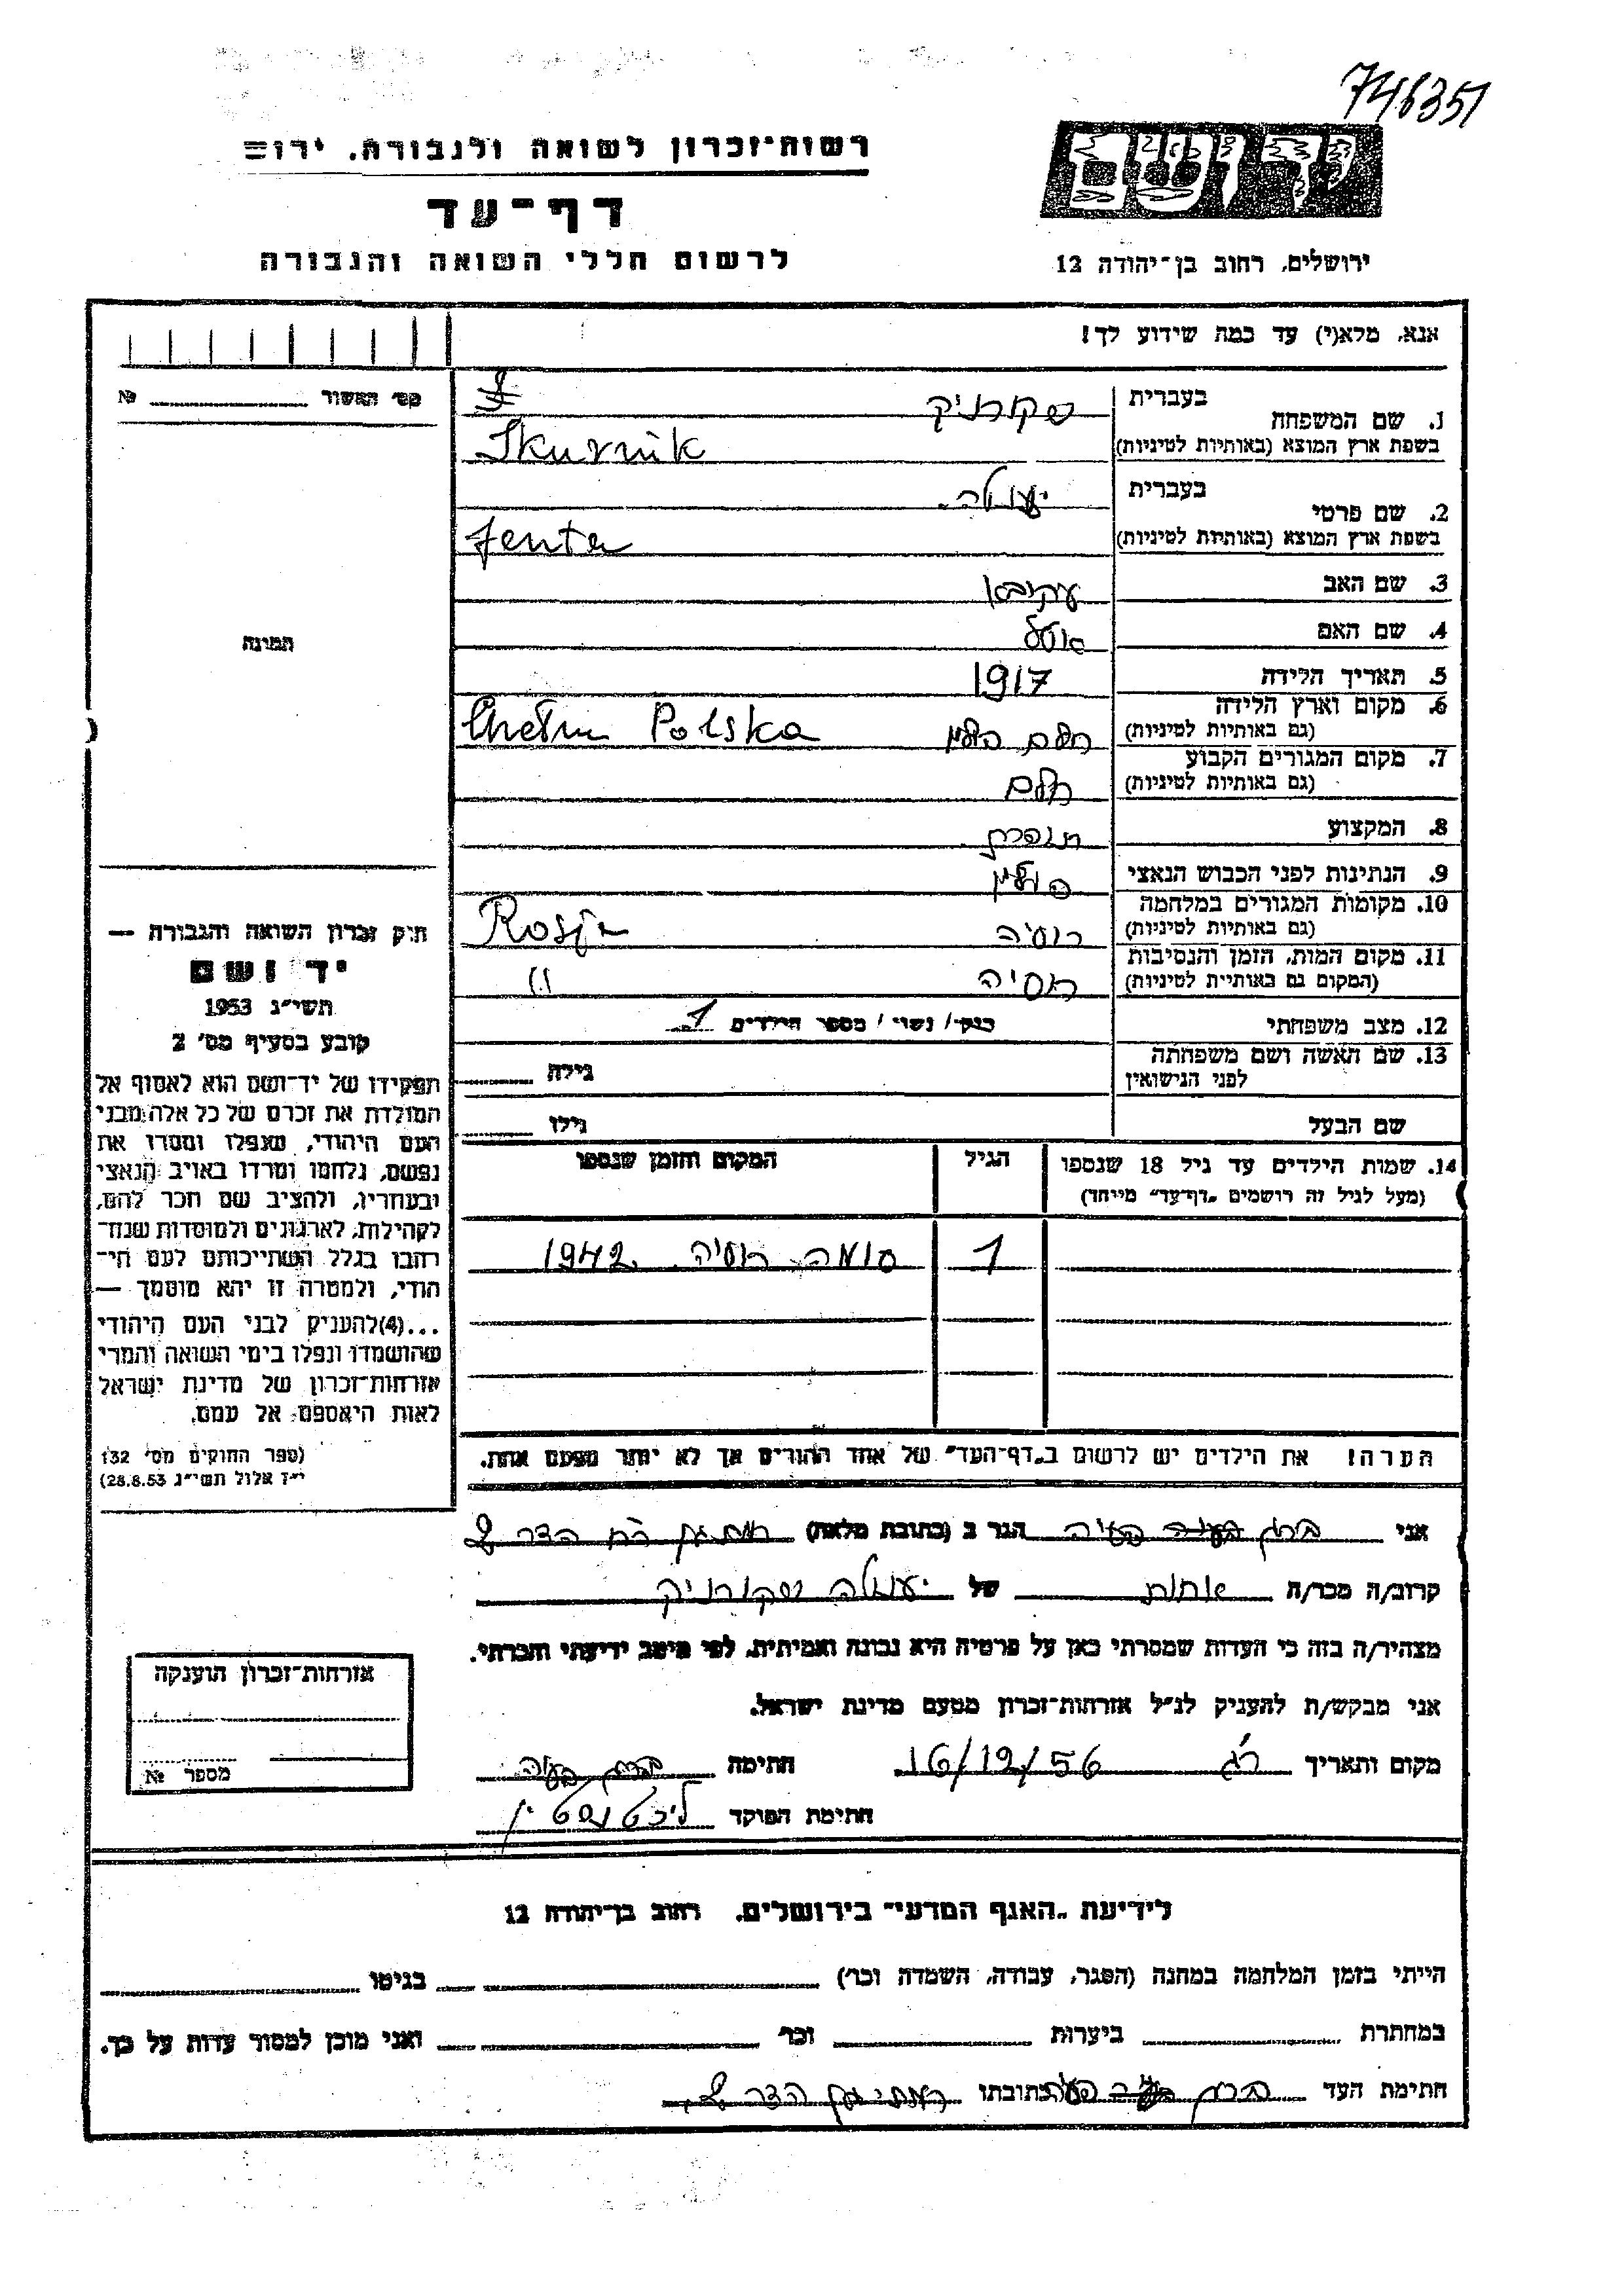 746351
רשות־זכרון לשואה ולגבורה, ירו
דף־עד
לרשום חללי השואה והגבורה
ירושלים, רחוב בן־יהודה 12
אנא, מלא(י) עד כמה שידוע לך!
מס׳ האשור №
בעברית שקורניק
1. שם המשפחה
בשפת ארץ המוצא (באותיות לטיניות) Skurnik
בעברית
2. שם פרטי
בשפת ארץ המוצא (באותיות לטיניות) Jenta
3. שם האב עקיבא
4. שם האם
5. תאריך הלידה 1917
6. מקום וארץ הלידה חלם פולין Chełm Polska
(גם באותיות לטיניות)
7. מקום המגורים הקבוע חלם
(גם באותיות לטיניות)
8. המקצוע תופרת
9. הנתינות לפני הכבוש הנאצי פולין
10. מקומות המגורים במלחמה רוסיה Rosja
(גם באותיות לטיניות)
11. מקום המות, הזמן והנסיבות רוסיה
(המקום גם באותיית לטיניות)
12. מצב משפחתי רנק/ נשוי/ מספר הילדים 1
13. שם האשה ושם משפחתה גילה
לפני הנישואין
שם הבעל גילו
תמונה
חוק זכרון השואה והגבורה —
יד ושם
תשי״ג 1953
קובע בסעיף מס׳ 2
תפקידו של יד־ושם הוא לאסוף אל
המולדת את זכרם של כל אלה מבני
העם היהודי, שנפלו ומסרו את
נפשם, נלחמו ומרדו באויב הנאצי
ובעוזריו, ולהציב שם וזכר להם,
לקהילות, לארגונים ולמוסדות שנח־
רבו בגלל השתייכותם לעם הי־
הודי, ולמטרה זו יהא מוסמך —
...(4) להעניק לבני העם היהודי
שהושמדו ונפלו בימי השואה והמרי
אזרחות־זכרון של מדינת ישראל
לאות היאספם אל עמם.
(ספר החוקים מס׳ 132
י״ז אלול תשי״ג 28.8.53)
14. שמות הילדים עד גיל 18 שנספו הגיל המקום והזמן שנספו
(מעל לגיל זה רושמים „דף־עד״ מיוחד)
1 רוסיה 1942
הערה! את הילדים יש לרשום ב„דף־העד״ של אחד ההורים אך לא יותר מפעם אחת.
אני הגר ב (כתובת מלאה) רמת גן רח הדר 2
קרוב/ה מכר/ה אחות של שקורניק
מצהיר/ה בזה כי העדות שמסרתי כאן על פרטיה היא נכונה ואמיתית, לפי מיטב ידיעתי והכרתי.
אני מבקש/ת להעניק לנ״ל אזרחות־זכרון מטעם מדינת ישראל.
מקום ותאריך ר״ג 16/12/56 חתימה
חתימת הפוקד ליכטנשטיין
אזרחות־זכרון הוענקה
מספר №
לידיעת „האגף המדעי״ בירושלים, רחוב בן־יהודה 12
הייתי בזמן המלחמה במחנה (הסגר, עבודה, השמדה וכו׳) בגיטו
במחתרת ביערות וכו׳ ואני מוכן למסור עדות על כך.
חתימת העד כתובתו רמת גן הדר 2